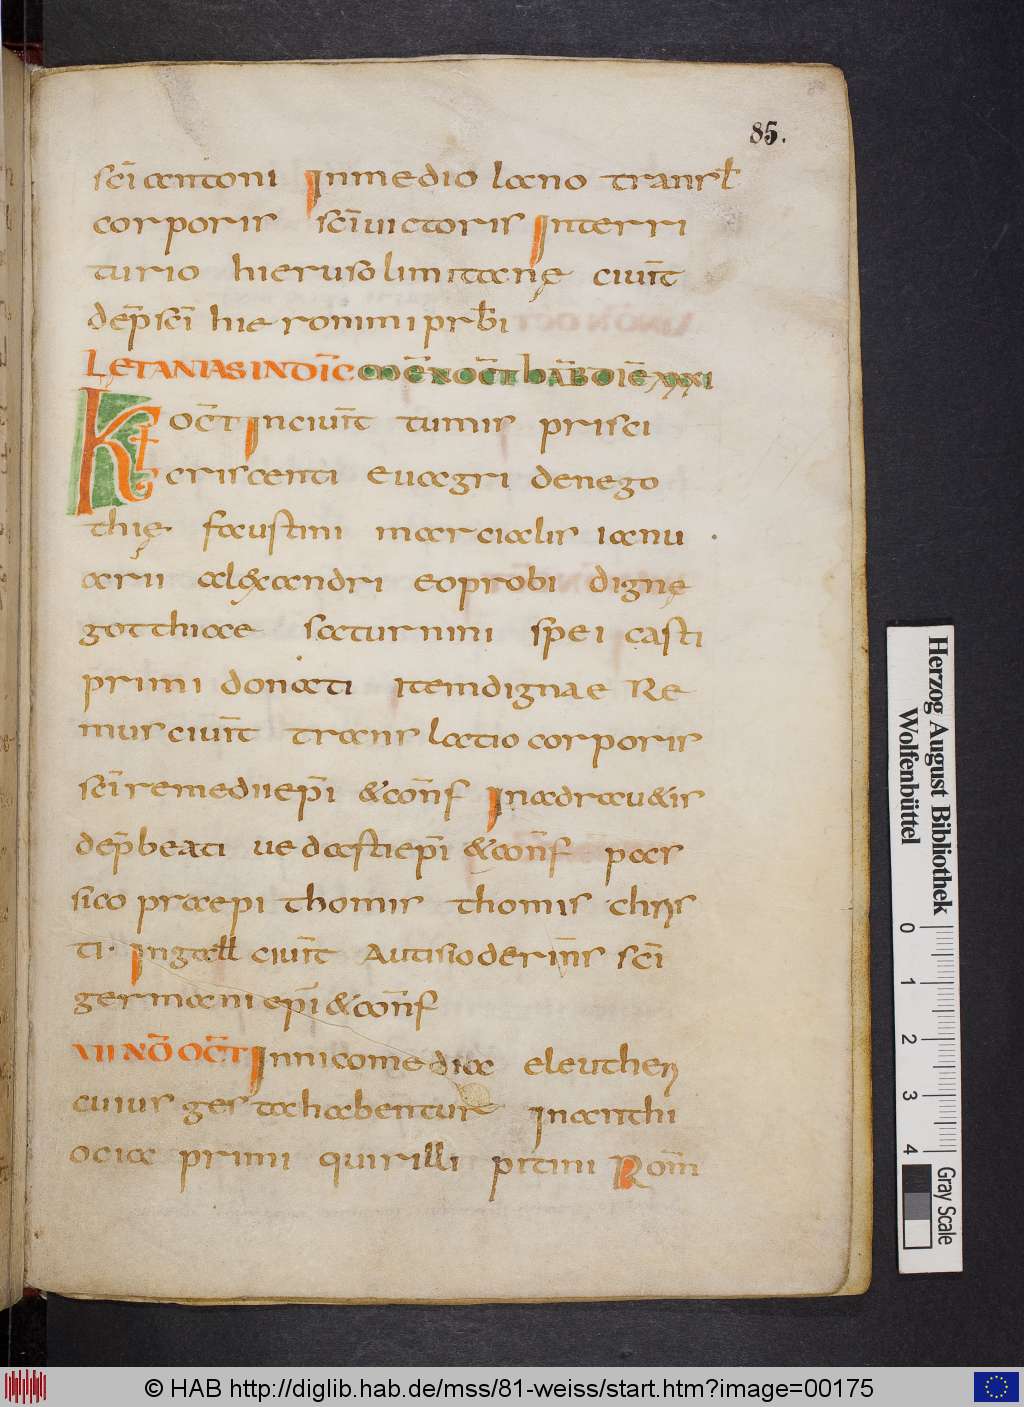 85.
sc̄i antoni Inmedio lano transl̄
corporis sc̄i uictoris Interri
turio hierusolimitane ciuit̄
dep̄ sc̄i hieronimi prb̄i
LETANIAS INDIC̄ MEN̄ OCT̄ HAB̄ DIĒ XXXI
KL OCT̄ Inciuit̄ tumis prisci
criscenti euagri denego
thię faustini marcialis ianu
arii alęxandri eoprobi dignę
gotthiae saturnini spei casti
primi donati item dignae Re
mus ciuit̄ translatio corporis
sc̄i remedii ep̄i & con̄f Inadrau&is
dep̄ beati uedasti ep̄i & con̄f par
sico praepi thomis thomis chrs
ti. Ingall̄ ciuit̄ Autisioderin̄s sc̄i
germani ep̄i & con̄f
VI NŌ OCT̄ Innicomedia eleutherı
cuius gesta habentur Inanthi
ocia primi quirilli pitimi Rom̄
Herzog August Bibliothek
Wolfenbüttel
0 1 2 3 4
Gray Scale
© HAB http://diglib.hab.de/mss/81-weiss/start.htm?image=00175